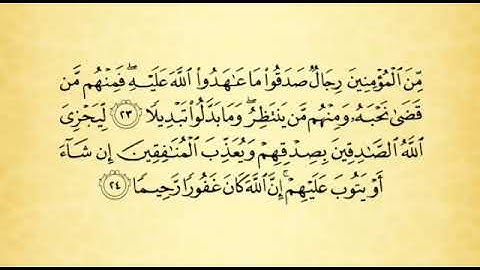 مِّنَ ٱلْمُؤْمِنِينَ رِجَالٌ صَدَقُوا۟ مَا عَـٰهَدُوا۟ ٱللَّهَ عَلَيْهِ ۖ فَمِنْهُم مَّن
قَضَىٰ نَحْبَهُۥ وَمِنْهُم مَّن يَنتَظِرُ ۖ وَمَا بَدَّلُوا۟ تَبْدِيلًا ٢٣ لِّيَجْزِىَ
ٱللَّهُ ٱلصَّـٰدِقِينَ بِصِدْقِهِمْ وَيُعَذِّبَ ٱلْمُنَـٰفِقِينَ إِن شَآءَ
أَوْ يَتُوبَ عَلَيْهِمْ ۚ إِنَّ ٱللَّهَ كَانَ غَفُورًا رَّحِيمًا ٢٤